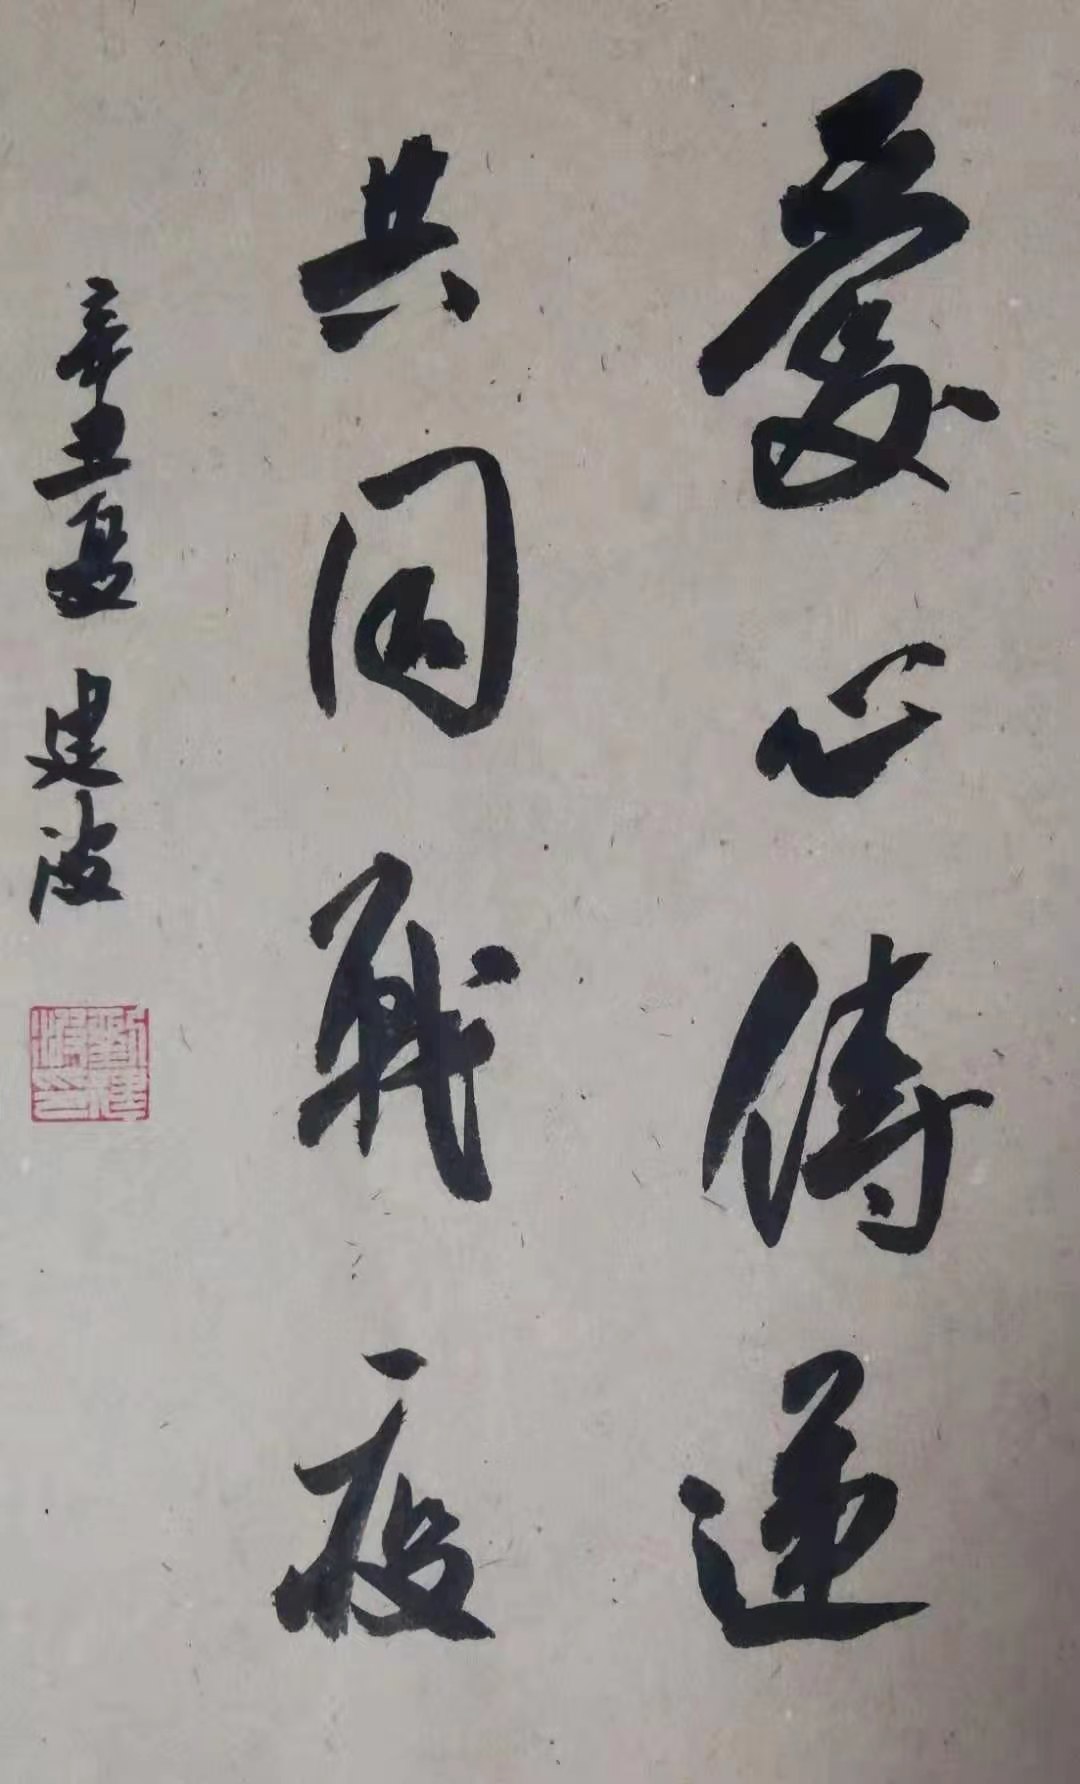 愛心傳遞
共同戰疫
辛丑夏 建波
劉建波印